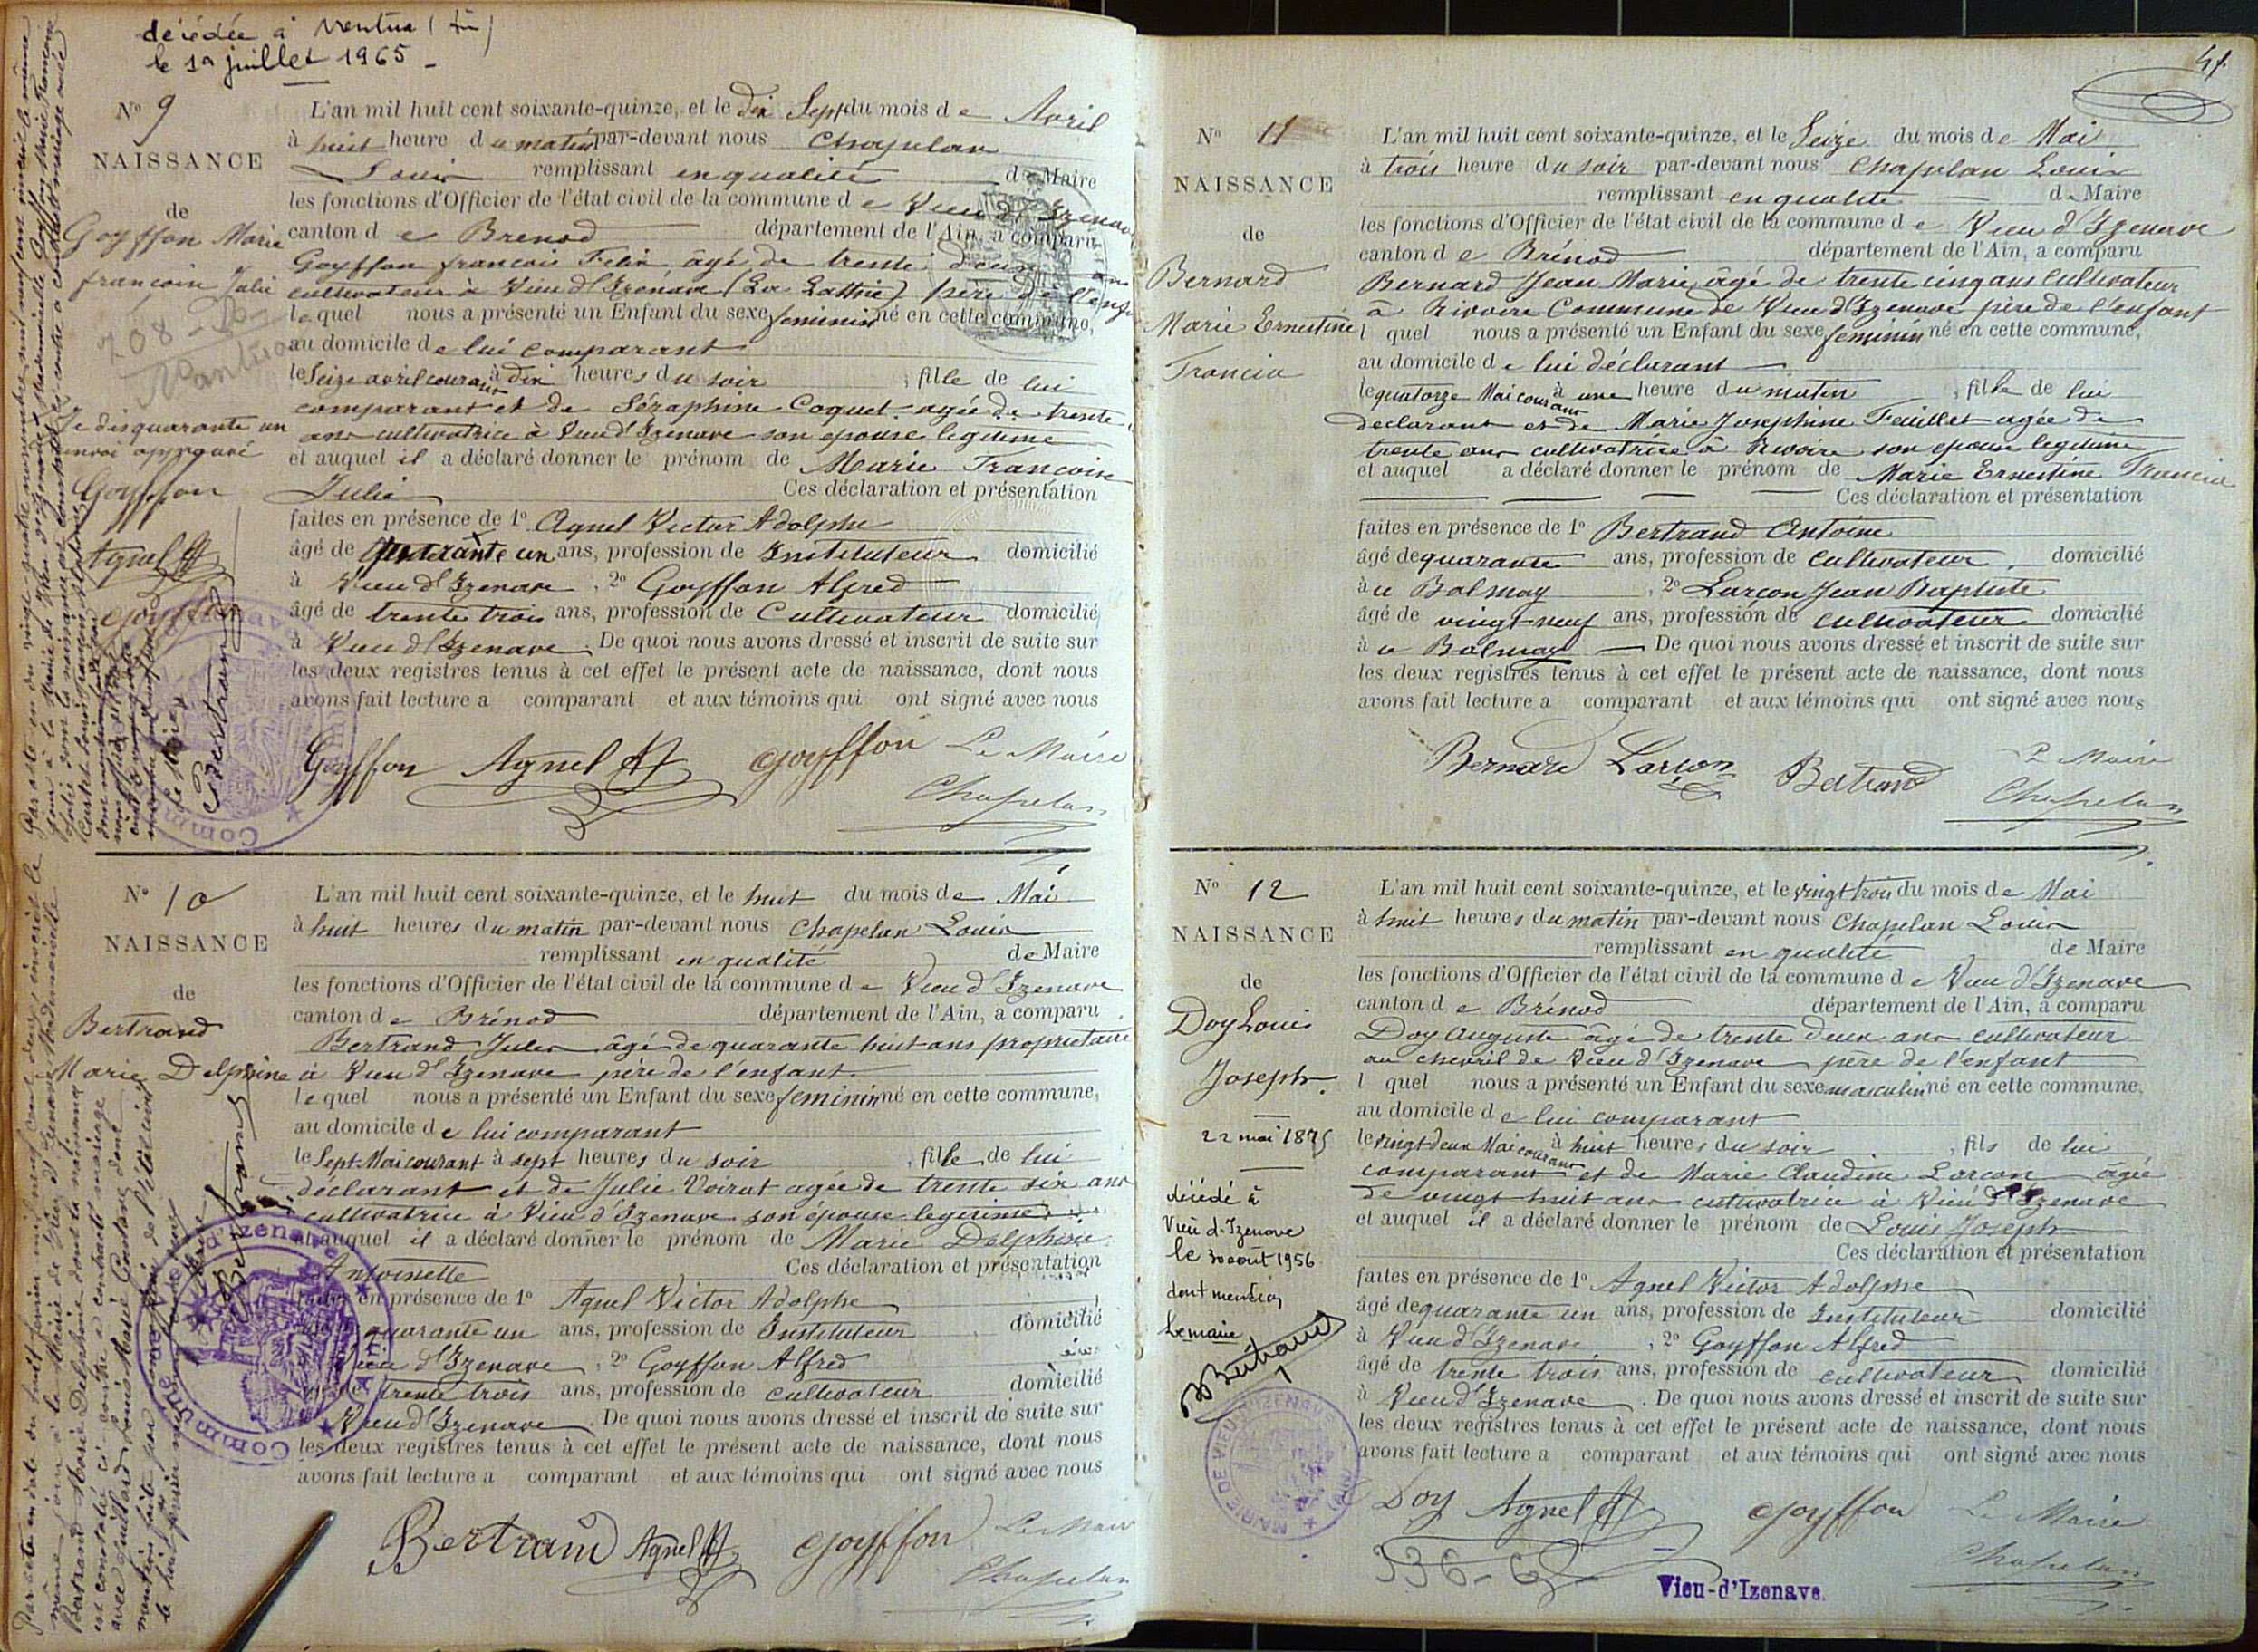 décédée à Nantua (Ain)
le 1a juillet 1965
Nº 9
NAISSANCE
de
Goyffon Marie
françoise Julie
708
Nantua
Je dis quarante un
envoi approuvé
Goyffon
Agnel
Goyffon
Bertrand
L'an mil huit cent soixante-quinze, et le dix Sept du mois de Avril
à huit heure du matin par-devant nous Chapelan
Louis remplissant en qualité de Maire
les fonctions d'Officier de l'état civil de la commune de Vieu d'Izenave
canton de Brenod département de l'Ain, a comparu
Goyffon francois Felix âgé de trente deux ans
cultivateur à Vieu d'Izénave père de l'enfant
lequel nous a présenté un Enfant du sexe feminin né en cette commune,
au domicile de lui comparant
le Seize avril courant à dix heures du soir, fille de lui
comparant et de Séraphine Coquet agée de trente
ans cultivatrice à Vieu d'Izenave son epouse legitime
et auquel il a déclaré donner le prénom de Marie Francoise
Julie Ces déclaration et présentation
faites en présence de 1º Agnel Victor Adolphe
âgé de quarante un ans, profession de Instituteur domicilié
à Vieu d'Izenave, 2º Goyffon Alfred
âgé de trente trois ans, profession de Cultivateur domicilié
à Vieu d'Izenave De quoi nous avons dressé et inscrit de suite sur
les deux registres tenus à cet effet le présent acte de naissance, dont nous
avons fait lecture a comparant et aux témoins qui ont signé avec nous
Goyffon Agnel Goyffon Le Maire
Chapelan
Nº 10
NAISSANCE
de
Bertrand
Marie Delphine
L'an mil huit cent soixante-quinze, et le huit du mois de Mai
à huit heures du matin par-devant nous Chapelan Louis
remplissant en qualité de Maire
les fonctions d'Officier de l'état civil de la commune de Vieu d'Izenave
canton de Brénod département de l'Ain, a comparu
Bertrand Jules âgé de quarante huit ans propriétaire
à Vieu d'Izenave père de l'enfant
lequel nous a présenté un Enfant du sexe feminin né en cette commune,
au domicile de lui comparant
le Sept Mai courant à sept heures du soir, fille de lui
déclarant et de Julie Voirat agée de trente six ans
cultivatrice à Vieu d'Izenave son épouse legitime
et auquel il a déclaré donner le prénom de Marie Delphine
Antoinette Ces déclaration et présentation
faites en présence de 1º Agnel Victor Adolphe
quarante un ans, profession de Instituteur domicilié
Vieu d'Izenave, 2º Goyffon Alfred
trente trois ans, profession de cultivateur domicilié
Vieu d'Izenave. De quoi nous avons dressé et inscrit de suite sur
les deux registres tenus à cet effet le présent acte de naissance, dont nous
avons fait lecture a comparant et aux témoins qui ont signé avec nous
Bertrand Agnel Goyffon Le Maire
Chapelan
Par acte en date du huit février mil neuf cent deux, inscrit le
même jour à la Mairie de Vieu d'Izenave, Mademoiselle
Bertrand Marie Delphine dont la naissance
est constatée ci-contre a contracté mariage
Bertrand
Commune d'Izenave
41
Nº 11
NAISSANCE
de
Bernard
Marie Ernestine
Francia
L'an mil huit cent soixante-quinze, et le Seize du mois de Mai
à trois heure du soir par-devant nous Chapelan Louis
remplissant en qualité de Maire
les fonctions d'Officier de l'état civil de la commune de Vieu d'Izenave
canton de Brénod département de l'Ain, a comparu
Bernard Jean Marie âgé de trente cinq ans Cultivateur
à Rivoire Commune de Vieu d'Izenave père de l'enfant
l quel nous a présenté un Enfant du sexe feminin né en cette commune,
au domicile de lui déclarant
le quatorze Mai courant à une heure du matin, fille de lui
declarant et de Marie Josephine Feuillet agée de
trente ans cultivatrice à Rivoire son epouse legitime
et auquel a déclaré donner le prénom de Marie Ernestine Francia
Ces déclaration et présentation
faites en présence de 1º Bertrand Antoine
âgé de quarante ans, profession de cultivateur, domicilié
à u Balmay, 2º Larçon Jean Baptiste
âgé de vingt-neuf ans, profession de cultivateur domicilié
à u Balmay De quoi nous avons dressé et inscrit de suite sur
les deux registres tenus à cet effet le présent acte de naissance, dont nous
avons fait lecture a comparant et aux témoins qui ont signé avec nous
Bernard Larçon Bertrand Le Maire
Chapelan
Nº 12
NAISSANCE
de
Doy Louis
Joseph
22 mai 1875
décédé à
Vieu d'Izenave
le 30 août 1956
dont mention
Le maire
Bertrand
MAIRIE DE VIEU D'IZENAVE (AIN)
L'an mil huit cent soixante-quinze, et le vingt trois du mois de Mai
à huit heures du matin par-devant nous Chapelan Louis
remplissant en qualité de Maire
les fonctions d'Officier de l'état civil de la commune de Vieu d'Izenave
canton de Brénod département de l'Ain, a comparu
Doy Auguste âgé de trente deux ans cultivateur
au chevril de Vieu d'Izenave père de l'enfant
l quel nous a présenté un Enfant du sexe masculin né en cette commune,
au domicile de lui comparant
le vingt deux Mai courant à huit heures du soir, fils de lui
comparant et de Marie Claudine Larçon âgée
de vingt huit ans cultivatrice à Vieu d'Izenave
et auquel il a déclaré donner le prénom de Louis Joseph
Ces déclaration et présentation
faites en présence de 1º Agnel Victor Adolphe
âgé de quarante un ans, profession de Instituteur domicilié
à Vieu d'Izenave, 2º Goyffon Alfred
âgé de trente trois ans, profession de cultivateur domicilié
à Vieu d'Izenave. De quoi nous avons dressé et inscrit de suite sur
les deux registres tenus à cet effet le présent acte de naissance, dont nous
avons fait lecture a comparant et aux témoins qui ont signé avec nous
Doy Agnel Goyffon Le Maire
Chapelan
Vieu-d'Izenave.